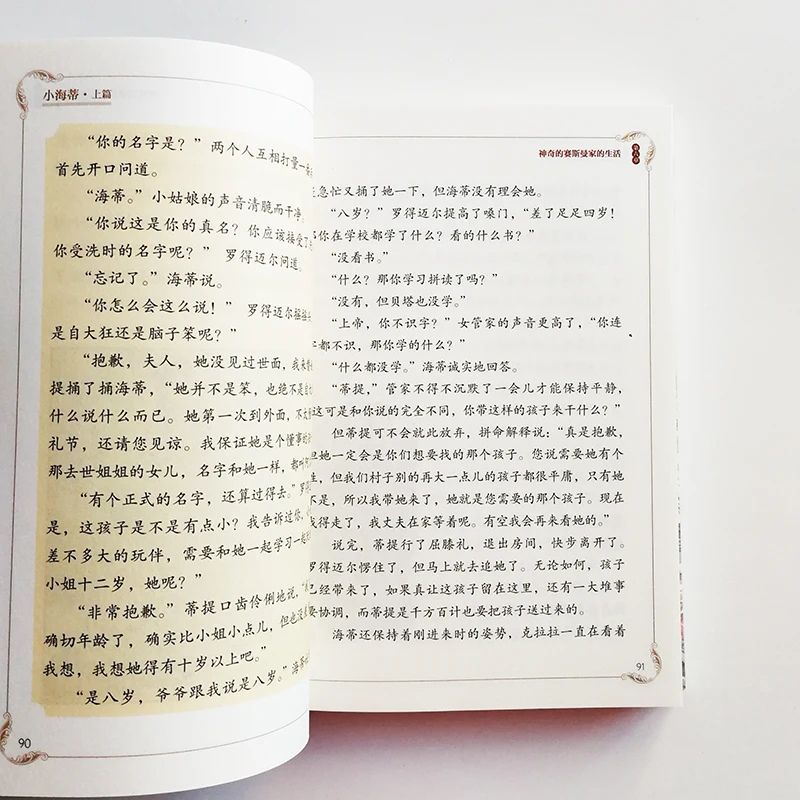 小海蒂·上篇
“你的名字是？”两个人互相打量一
首先开口问道。
“海蒂。”小姑娘的声音清脆而干净。
“你说这是你的真名？你应该接受了
你受洗时的名字呢？”罗得迈尔问道。
“忘记了。”海蒂说。
“你怎么会这么说！”罗得迈尔
是自大狂还是脑子笨呢？”
“抱歉，夫人，她没见过世面，我来
提捅了捅海蒂，“她并不是笨，也绝不是自
什么说什么而已。她第一次到外面，不大
礼节，还请您见谅。我保证她是个懂事的
那去世姐姐的女儿，名字和她一样，都叫
“有个正式的名字，还算过得去。”罗
是，这孩子是不是有点小？我告诉过你，
差不多大的玩伴，需要和她一起学习一起
小姐十二岁，她呢？”
“非常抱歉。”蒂提口齿伶俐地说，
确切年龄了，确实比小姐小点儿，但也没
我想，我想她得有十岁以上吧。”
“是八岁，爷爷跟我说是八岁。”海蒂
90
神奇的赛斯曼家的生活
急忙又捅了她一下，但海蒂没有理会她。
“八岁？”罗得迈尔提高了嗓门，“差了足足四岁！
你在学校都学了什么？看的什么书？”
“没看书。”
“什么？那你学习拼读了吗？”
“没有，但贝塔也没学。”
“上帝，你不识字？”女管家的声音更高了，“你连
字都不识，那你学的什么？”
“什么都没学。”海蒂诚实地回答。
“蒂提，”管家不得不沉默了一会儿才能保持平静，
这可是和你说的完全不同，你带这样的孩子来干什么？”
但蒂提可不会就此放弃，拼命解释说：“真是抱歉，
但她一定会是你们想要找的那个孩子。您说需要她有个
性，但我们村子别的再大一点儿的孩子都很平庸，只有她
不是，所以我带她来了，她就是您需要的那个孩子。现在
我得走了，我丈夫在家等着呢。有空我会再来看她的。”
说完，蒂提行了屈膝礼，退出房间，快步离开了。
罗得迈尔愣住了，但马上就去追她了。无论如何，孩子
已经带来了，如果真让这孩子留在这里，还有一大堆事
要协调，而蒂提是千方百计也要把孩子送过来的。
海蒂还保持着刚进来时的姿势，克拉拉一直在看着
91